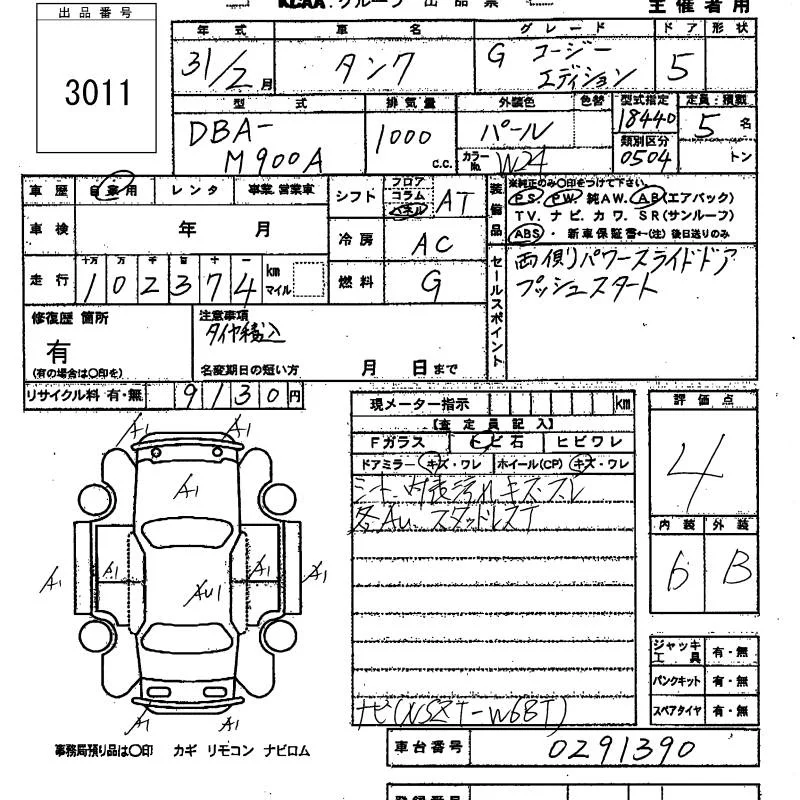 KCAA.グループ 出品票
主催者用
出品番号
3011
年式 車名 グレード ドア 形状
31/2月 タンク G コージーエディション 5
型式 排気量 外装色 色替 型式指定 定員・積載
DBA-M900A 1000 c.c. パール 18440 5名
カラーNo. W24 類別区分 0504 トン
車歴 自家用 レンタ 事業.営業車
車検 年 月
走行 十万 万 千 百 十 一
102374 km マイル
シフト フロア コラム パネル AT
冷房 AC
燃料 G
装備品
※純正のみ○印をつけて下さい。
PS. PW. 純AW. AB(エアバック)
TV. ナビ. カワ. SR(サンルーフ)
ABS・ 新車保証書←(注) 後日送りのみ
セールスポイント
両側パワースライドドア
プッシュスタート
修復歴 箇所
有
(有の場合は○印を)
注意事項
タイヤ積込
名変期日の短い方 月 日まで
リサイクル料 有・無 9130円
現メーター指示 km
【査定員記入】
Fガラス ヒビ石 ヒビワレ
ドアミラー キズ・ワレ ホイール(CP) キズ・ワレ
シート、内装汚れ キズ スレ
各AU. スタッドレスT
ナビ(NSZT-W68T)
評価点
4
内装 外装
6 B
ジャッキ工具 有・無
パンクキット 有・無
スペアタイヤ 有・無
A1 A1
A1
A1 A1 AU1 A1 A1
A1 A1
事務局預り品は○印 カギ リモコン ナビロム
車台番号 0291390
登録番号